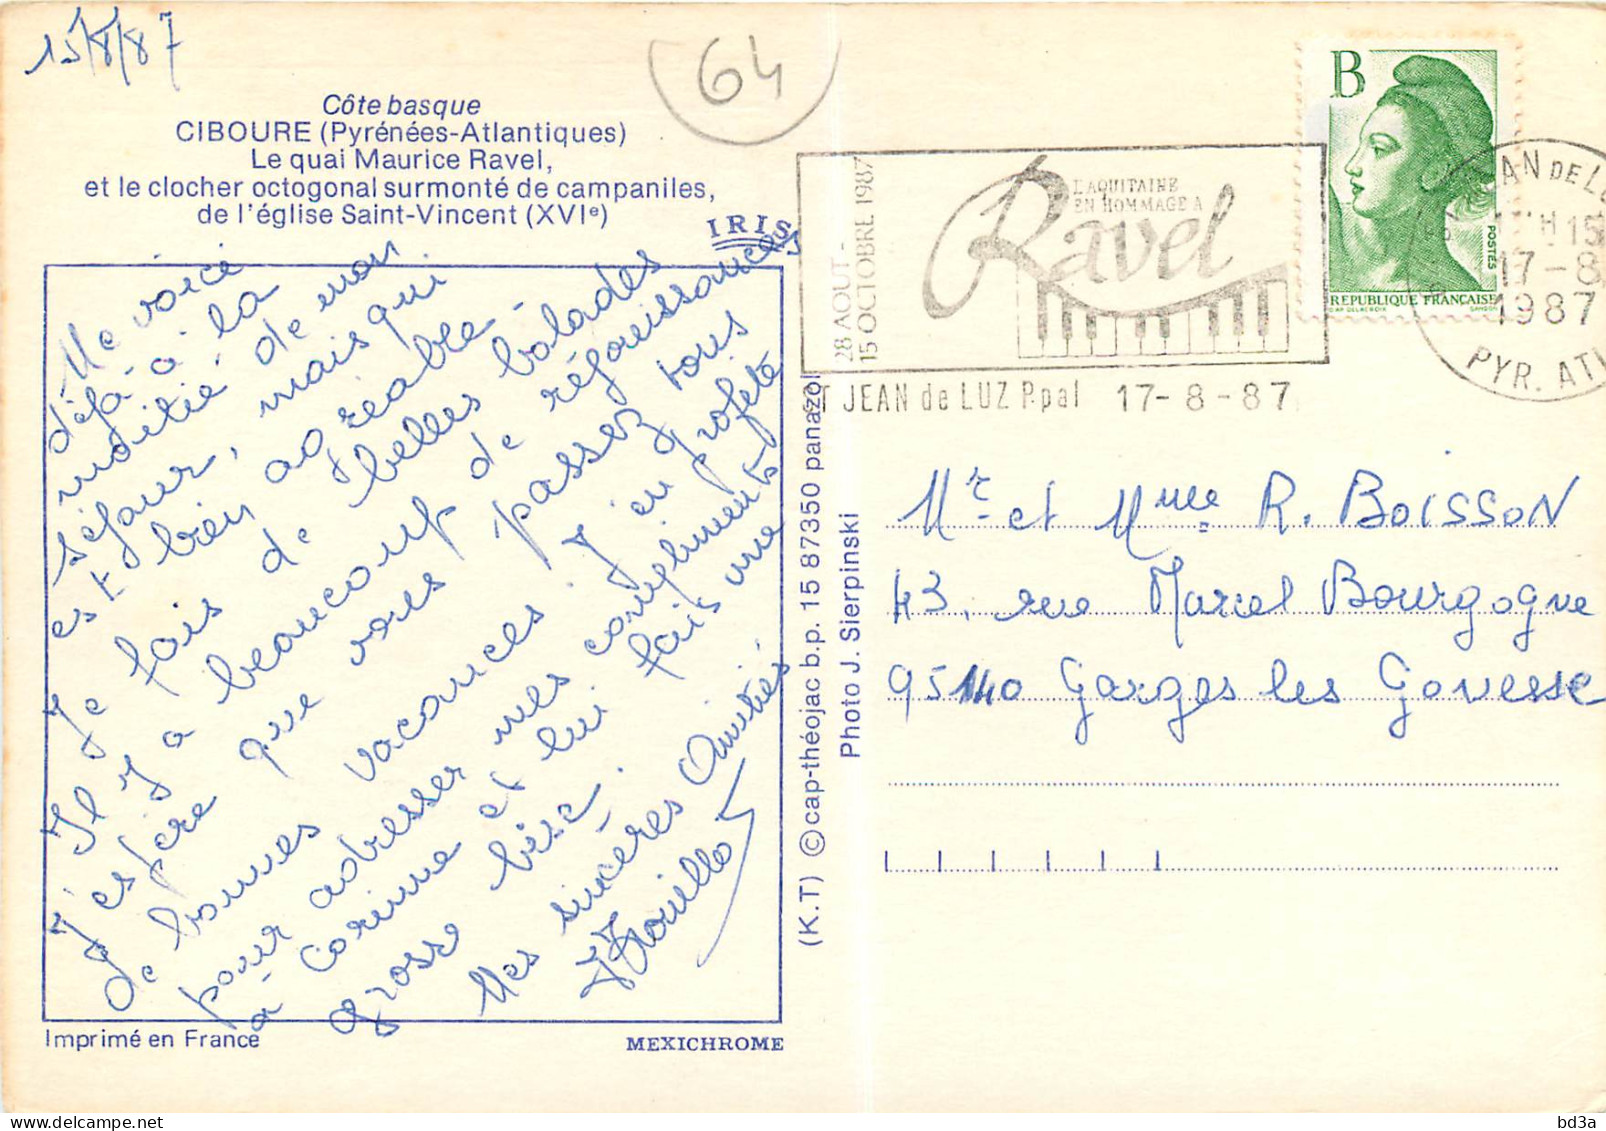 15/8/87
64
Côte basque
CIBOURE (Pyrénées-Atlantiques)
Le quai Maurice Ravel,
et le clocher octogonal surmonté de campaniles,
de l'église Saint-Vincent (XVIe)
IRIS
Me voici
déjà à la
moitié de mon
séjour, mais qui
est bien agréable.
Je fais de belles balades
Il y a beaucoup de réjouissances
J'espère que vous passez tous
de bonnes vacances. J'en profite
pour adresser mes compliments
à Corinne et lui fais une
grosse bise.
Mes sincères Amitiés
Imprimé en France
MEXICHROME
(K.T) © cap-théojac b.p. 15 87350 panazol
Photo J. Sierpinski
28 AOUT -
15 OCTOBRE 1987
L'AQUITAINE
EN HOMMAGE A
Ravel
ST JEAN de LUZ Ppal 17-8-87
B
POSTES
REPUBLIQUE FRANÇAISE
D'AP. DELACROIX GANDON
JEAN DE LU
H 15
17-8
1987
PYR. ATL
Mr et Mme R. BOISSON
43, rue Marcel Bourgogne
95140 Garges les Gonesse
bd3a